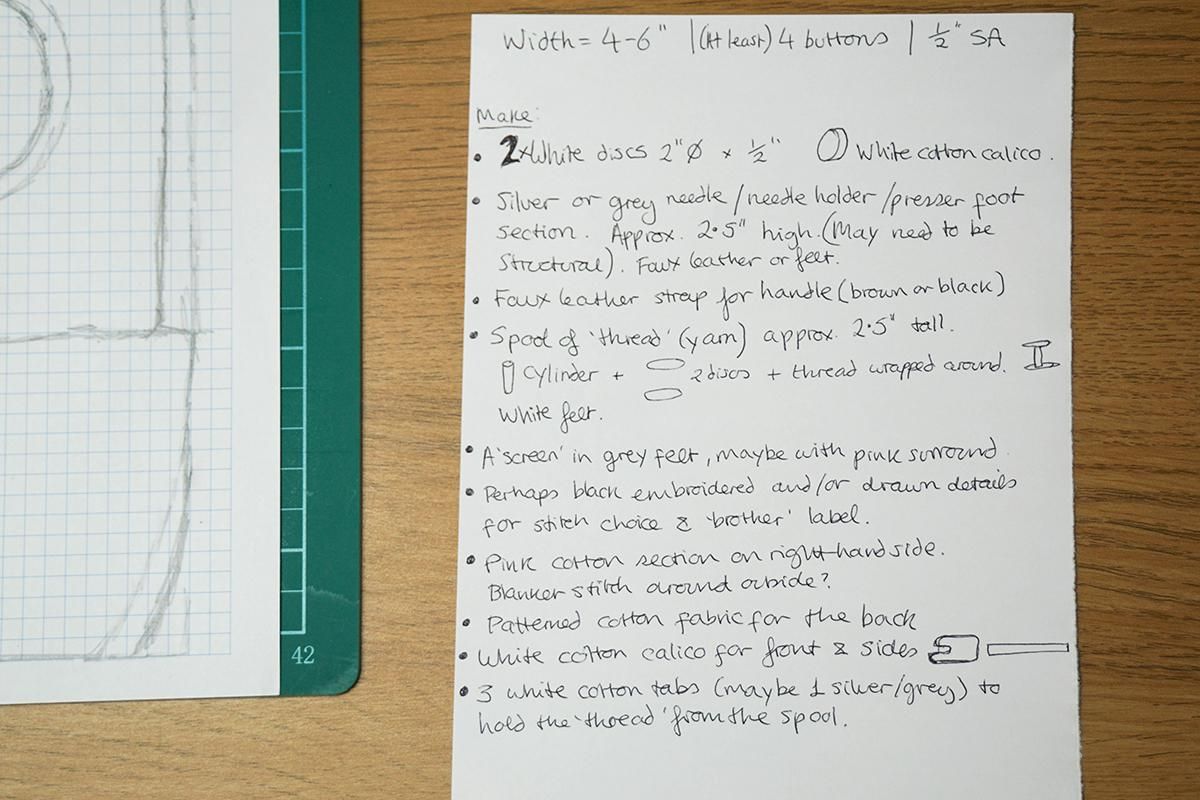 Width = 4-6" | (At least) 4 buttons | ½" SA
Make:
• 2 x White discs 2" Ø x ½" White cotton calico.
• Silver or grey needle / needle holder / presser foot
section. Approx. 2.5" high. (May need to be
structural). Faux leather or felt.
• Faux leather strap for handle (brown or black)
• Spool of 'thread' (yarn) approx. 2.5" tall.
cylinder + 2 discs + thread wrapped around.
White felt.
• A 'screen' in grey felt, maybe with pink surround.
• Perhaps black embroidered and/or drawn details
for stitch choice & 'brother' label.
• Pink cotton section on right hand side.
Blanket stitch around outside?
• Patterned cotton fabric for the back
• White cotton calico for front & sides
• 3 white cotton tabs (maybe 1 silver/grey) to
hold the 'thread' from the spool.
42